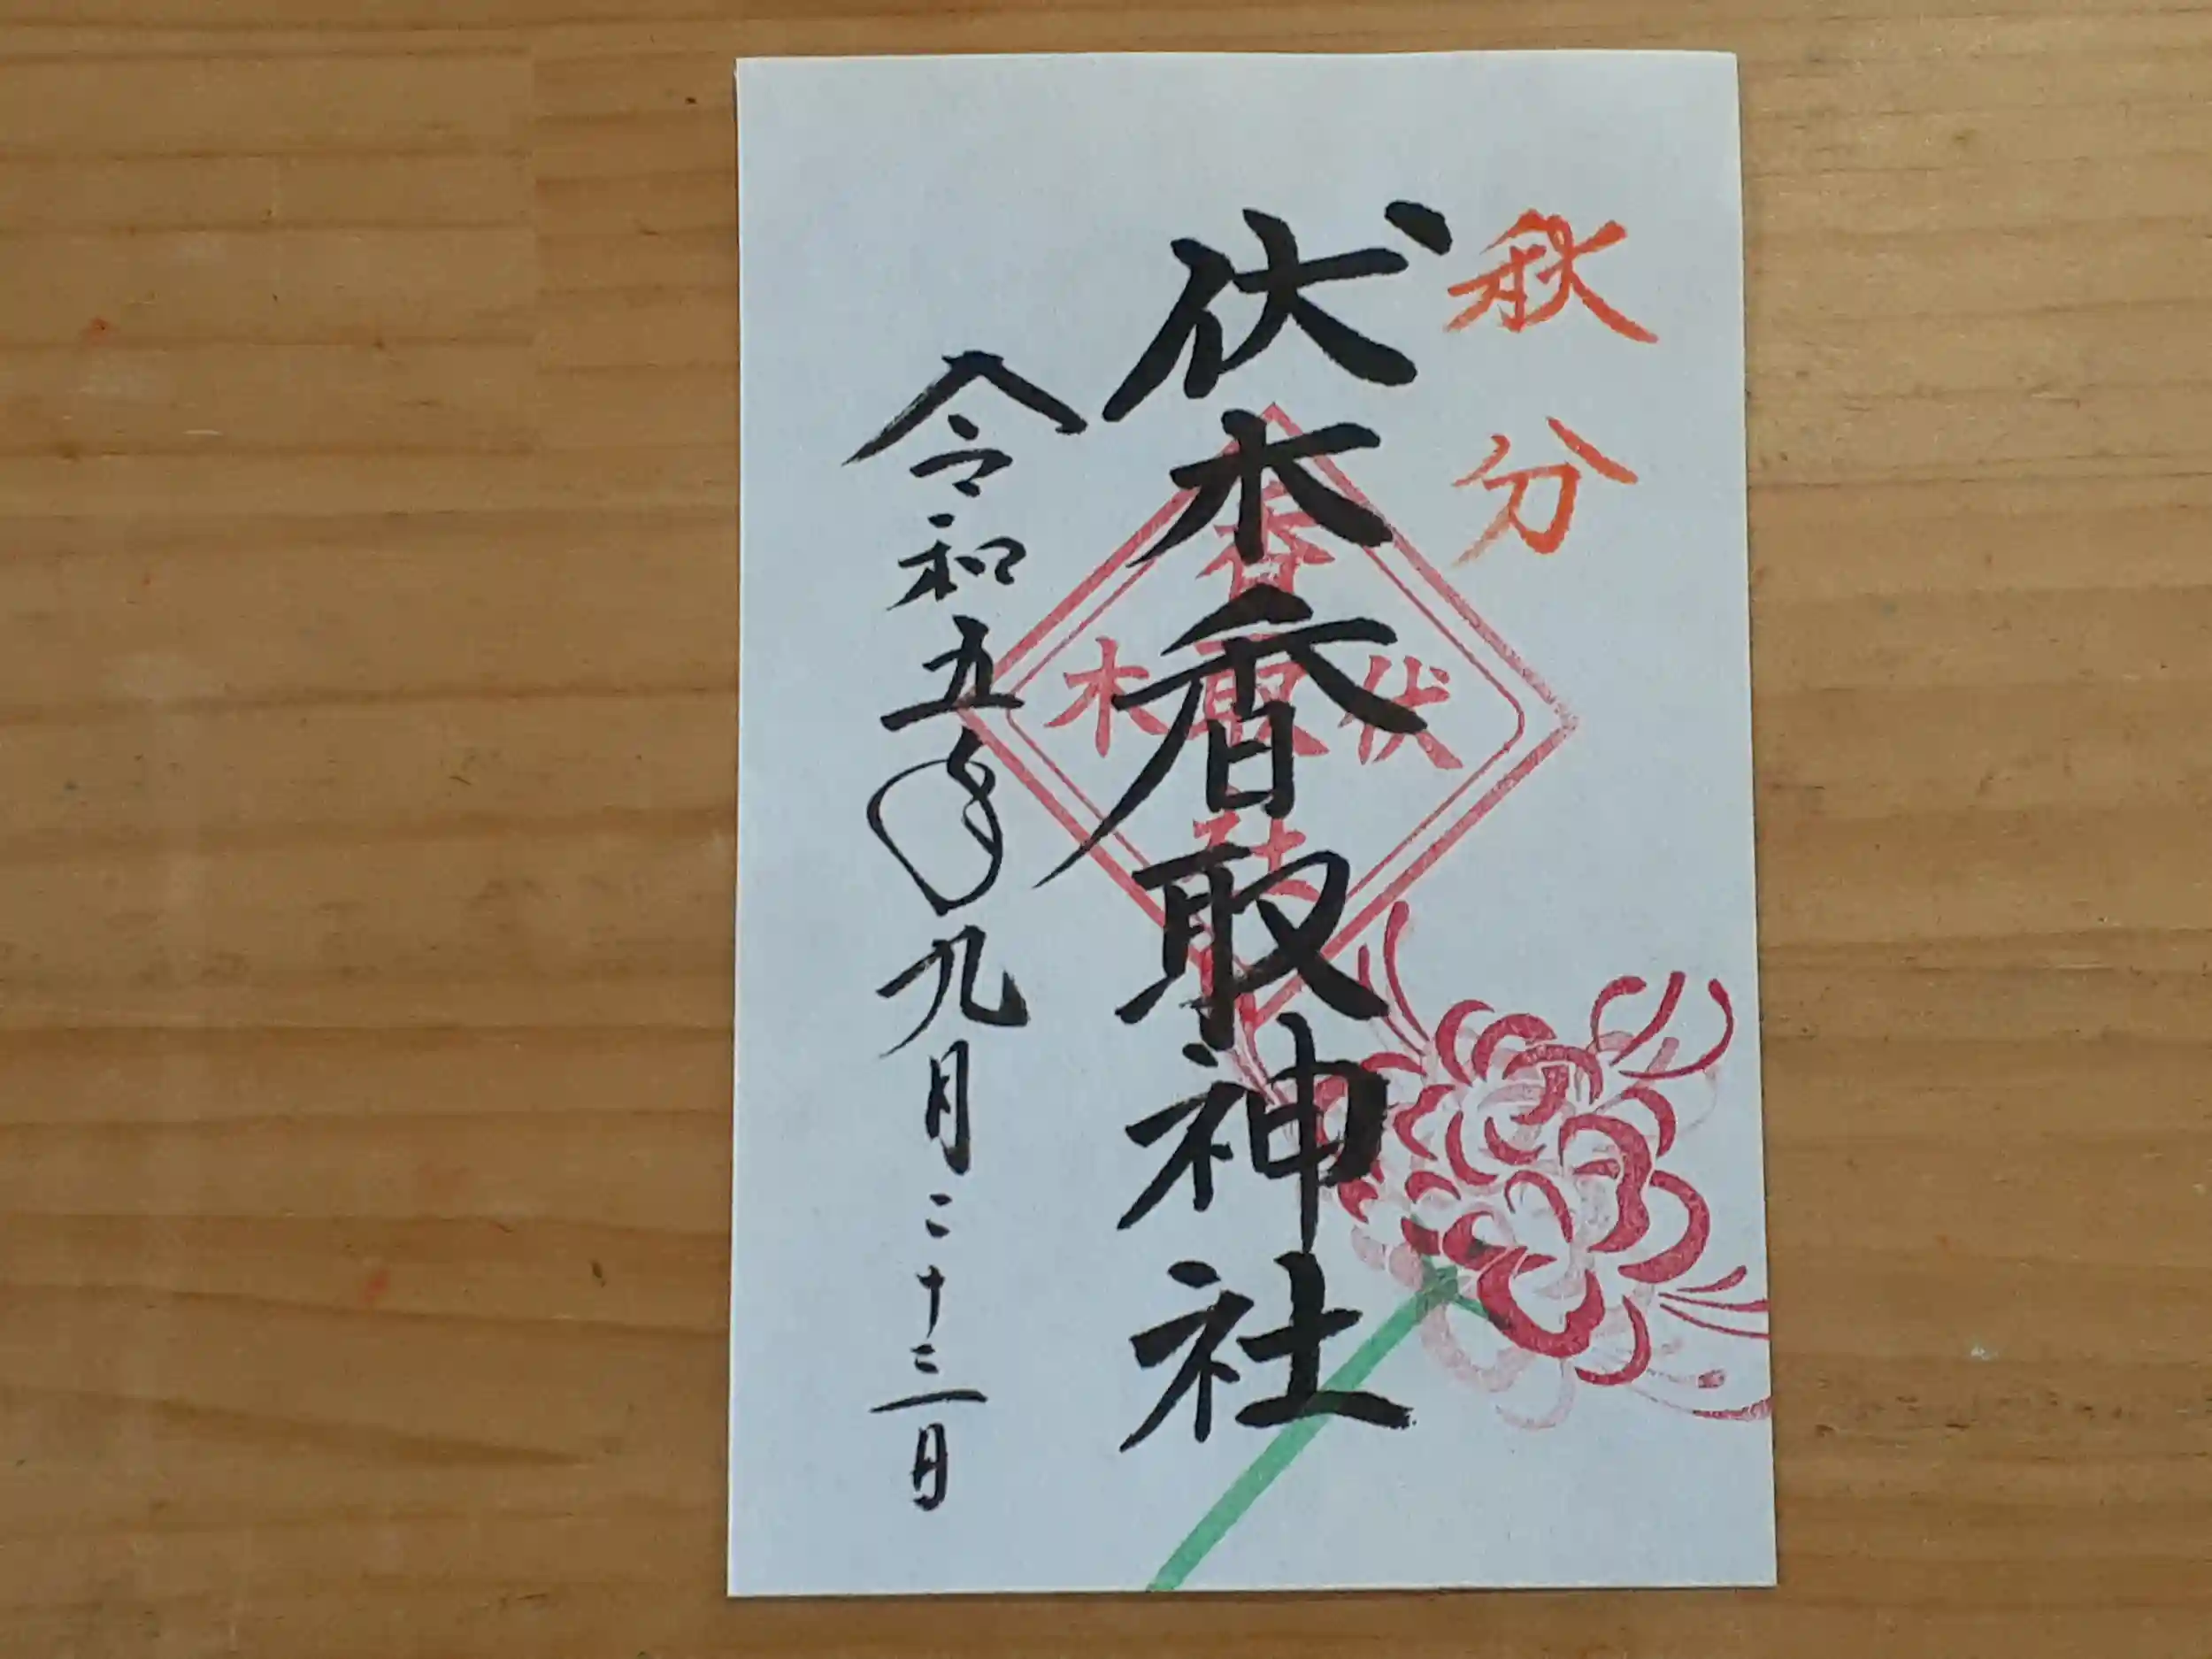 秋分
伏木香取神社
令和五年九月二十三日
香
伏取木
社